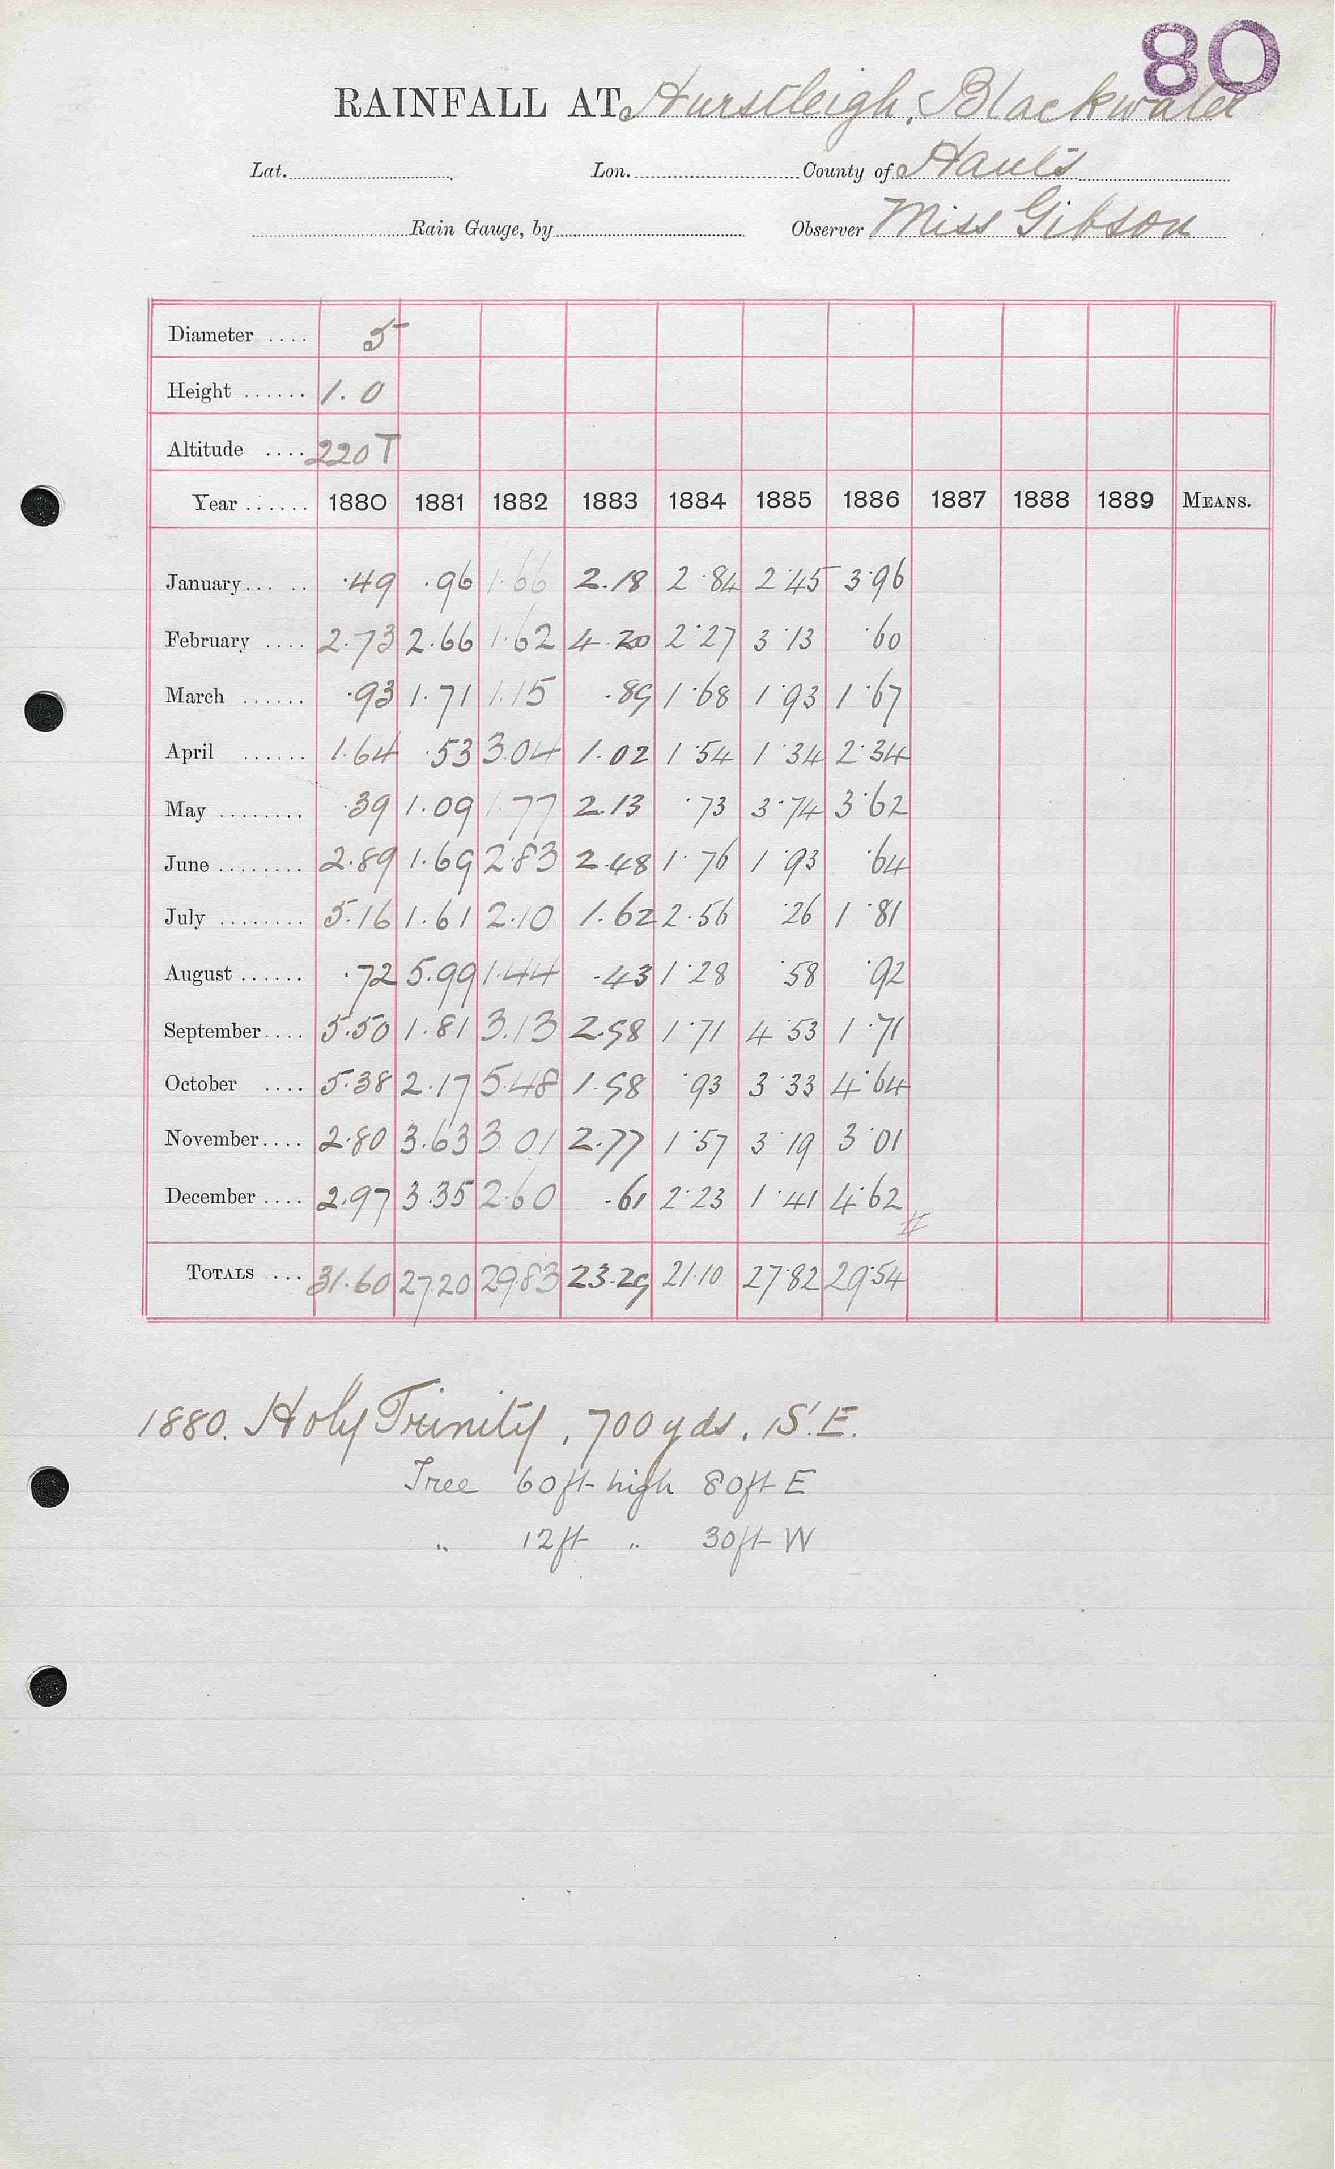 80
RAINFALL AT Hurstleigh, Blackwater
Lat. Lon. County of Hants
Rain Gauge, by Observer Miss Gibson
Diameter .... 5
Height ...... 1.0
Altitude .... 220 T
Year ...... 1880 1881 1882 1883 1884 1885 1886 1887 1888 1889 MEANS.
January... .. .49 .96 1.66 2.18 2.84 2.45 3.96
February .... 2.73 2.66 1.62 4.20 2.27 3.13 .60
March ...... .93 1.71 1.15 .89 1.68 1.93 1.67
April ...... 1.64 .53 3.04 1.02 1.54 1.34 2.34
May ........ .39 1.09 1.77 2.13 .73 3.74 3.62
June ........ 2.89 1.69 2.83 2.48 1.76 1.93 .64
July ........ 5.16 1.61 2.10 1.62 2.56 .26 1.81
August ...... .72 5.99 1.44 .43 1.28 .58 .92
September.... 5.50 1.81 3.13 2.98 1.71 4.53 1.71
October .... 5.38 2.17 5.48 1.98 .93 3.33 4.64
November.... 2.80 3.63 3.01 2.77 1.57 3.19 3.01
December .... 2.97 3.35 2.60 .61 2.23 1.41 4.62
TOTALS ... 31.60 27.20 29.83 23.29 21.10 27.82 29.54
1880. Holy Trinity, 700 yds. S.E.
Tree 60ft high 80ft E
" 12ft " 30ft W